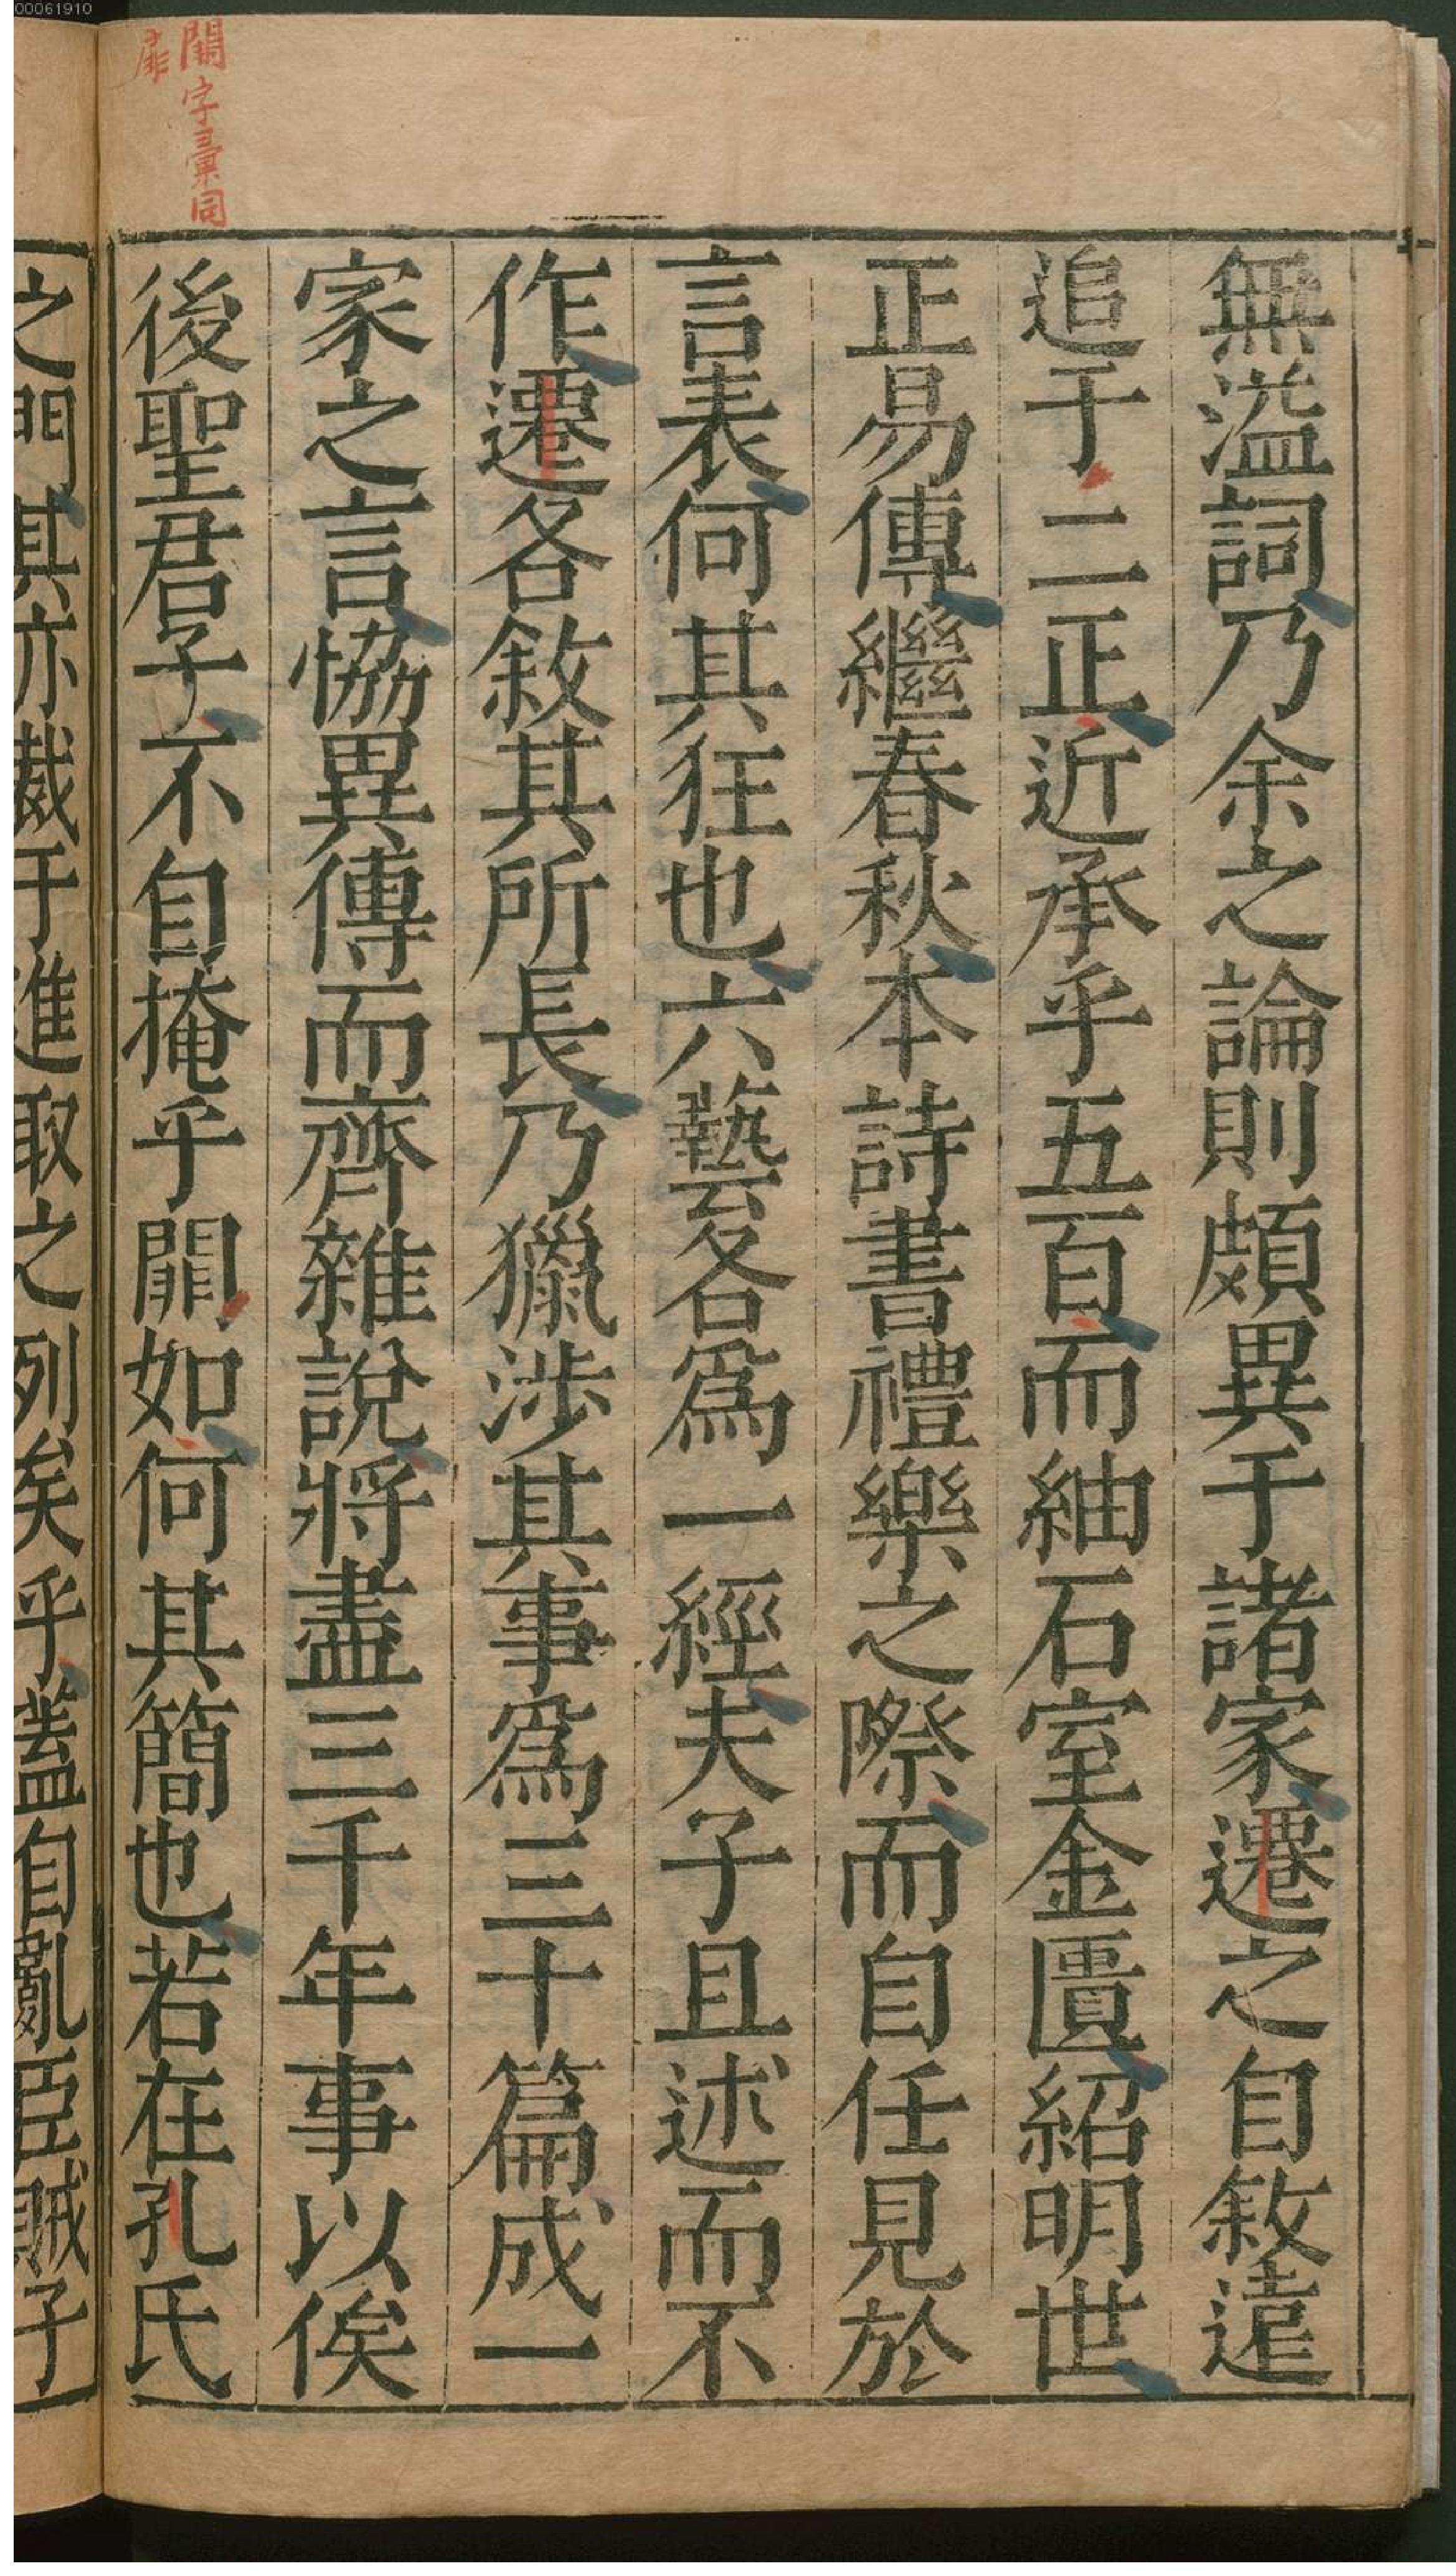 00061910
䦱字彙同
扉
無溢詞乃余之論則頗異于諸家遷之自敘遠
追于二正近承乎五百而紬石室金匱紹明世
正易傳繼春秋本詩書禮樂之際而自任見於
言表何其狂也六藝各爲一經夫子且述而不
作遷各敘其所長乃獵涉其事爲三十篇成一
家之言恊異傳而齊雜說將盡三千年事以俟
後聖君子不自掩乎䦱如何其簡也若在孔氏
之門其亦裁于進取之列矣乎葢自亂臣賊子